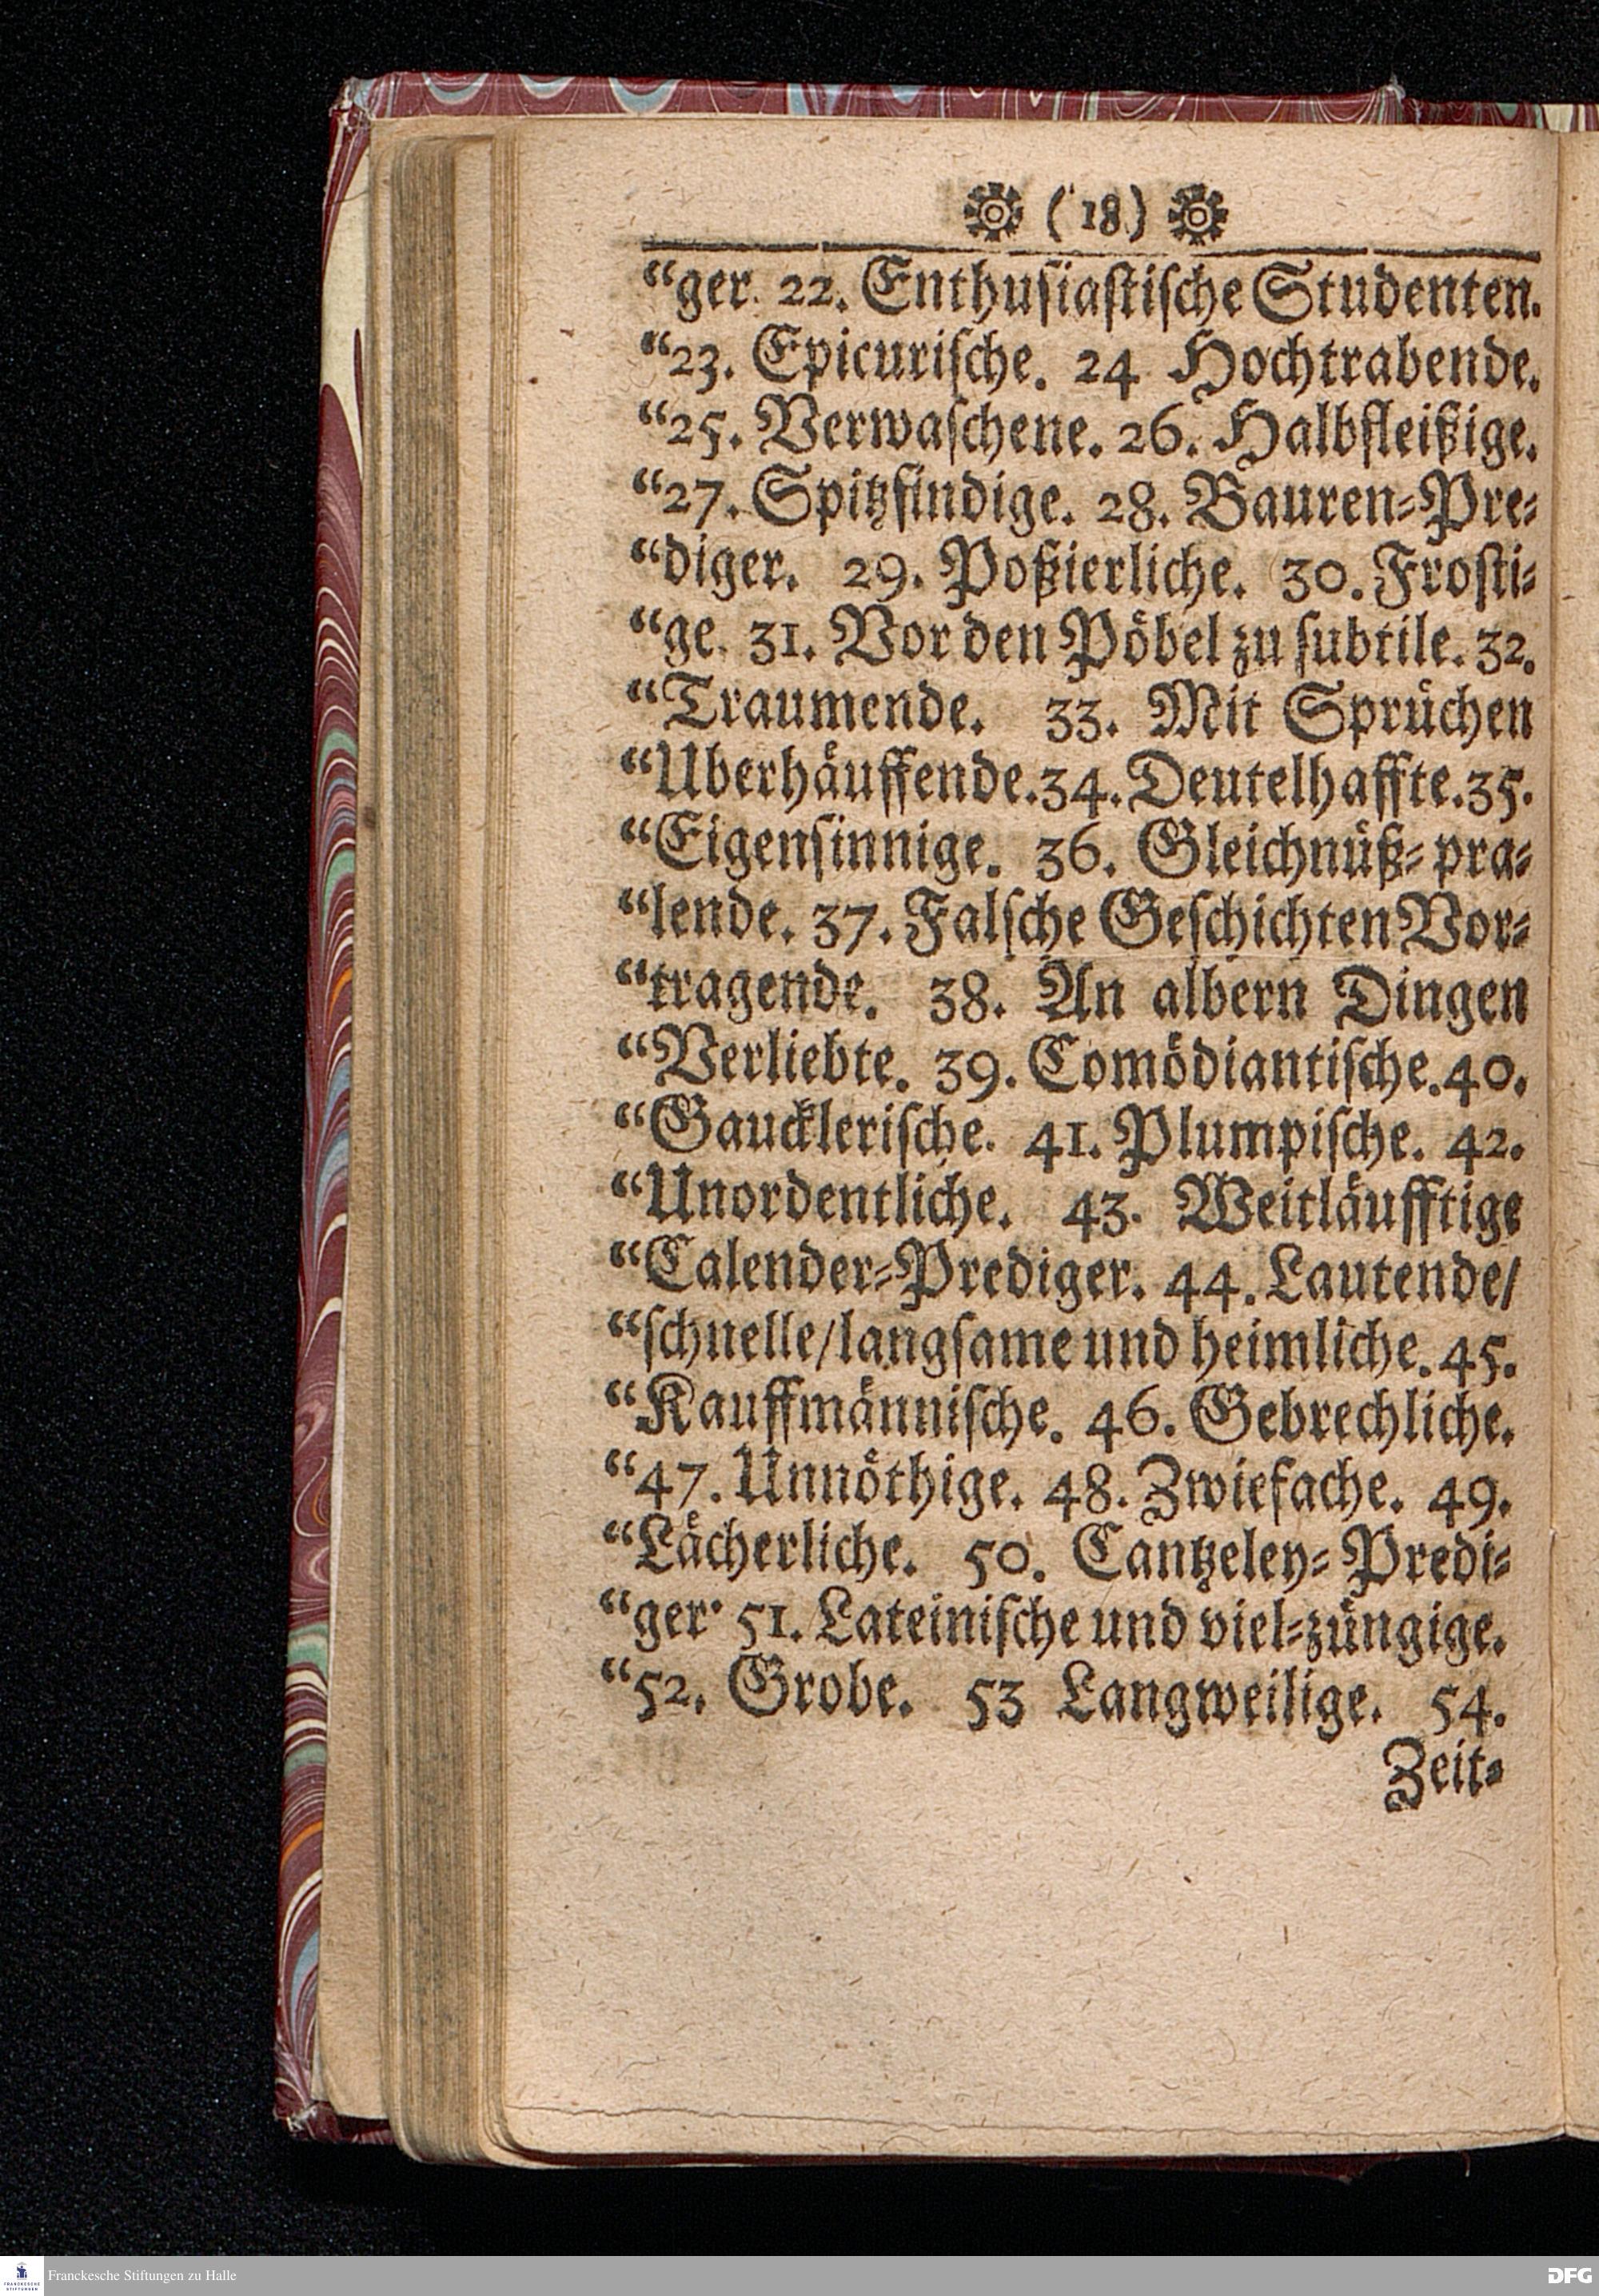 (18)
“ger. 22. Enthusiastische Studenten.
“23. Epicurische. 24 Hochtrabende.
“25. Verwaschene. 26. Halbfleißige.
“27. Spitzfindige. 28. Bauren-Pre-
“diger. 29. Poßierliche. 30. Frosti-
“ge. 31. Vor den Pöbel zu subtile. 32.
“Traumende. 33. Mit Sprüchen
“Uberhäuffende. 34. Deutelhaffte. 35.
“Eigensinnige. 36. Gleichnüß-pra-
“lende. 37. Falsche Geschichten Vor-
“tragende. 38. An albern Dingen
“Verliebte. 39. Comödiantische. 40.
“Gaucklerische. 41. Plumpische. 42.
“Unordentliche. 43. Weitläufftige
“Calender-Prediger. 44. Lautende/
“schnelle/langsame und heimliche. 45.
“Kauffmännische. 46. Gebrechliche.
“47. Unnöthige. 48. Zwiefache. 49.
“Lächerliche. 50. Cantzeley-Predi-
“ger. 51. Lateinische und viel-züngige.
“52. Grobe. 53 Langweilige. 54.
Zeit-
FRANCKESCHE STIFTUNGEN
Franckesche Stiftungen zu Halle
DFG